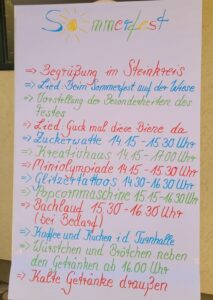 Sommerfest
⇒ Begrüßung im Steinkreis
⇒ Lied: Beim Sommerfest auf der Wiese
⇒ Vorstellung der Besonderheiten des
Festes
⇒ Lied: Guck mal diese Biene da
⇒ Zuckerwatte 14.15 - 15.30 Uhr
⇒ Kreativhaus 14.15 - 17.00 Uhr
⇒ Miniolympiade 14.15 - 15.30 Uhr
⇒ Glitzertattoos 14.30 - 16.30 Uhr
⇒ Popcornmaschine 15.15 - 16.30 Uhr
⇒ Bachlauf 15.30 - 16.30 Uhr
(bei Bedarf)
⇒ Kaffee und Kuchen i.d. Turnhalle
⇒ Würstchen und Brötchen neben
den Getränken ab 16.00 Uhr
⇒ Kalte Getränke draußen